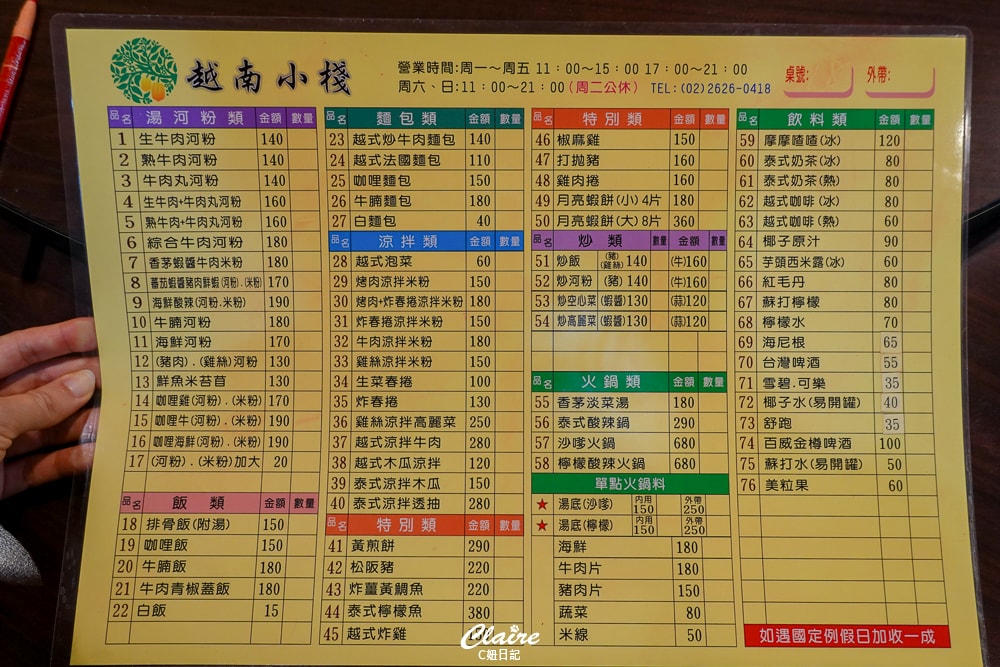 越南小棧
營業時間:周一～周五 11：00～15：00 17：00～21：00
周六、日:11：00～21：00 (周二公休) TEL:(02)2626-0418
桌號:
外帶:
品名 湯河粉類 金額 數量
1 生牛肉河粉 140
2 熟牛肉河粉 140
3 牛肉丸河粉 140
4 生牛肉+牛肉丸河粉 160
5 熟牛肉+牛肉丸河粉 160
6 綜合牛肉河粉 180
7 香茅蝦醬牛肉米粉 180
8 蕃茄蝦醬豬肉鮮蝦(河粉).(米粉) 170
9 海鮮酸辣(河粉.米粉) 190
10 牛腩河粉 180
11 海鮮河粉 170
12 (豬肉).(雞絲)河粉 130
13 鮮魚米苔苜 130
14 咖哩雞(河粉).(米粉) 170
15 咖哩牛(河粉).(米粉) 190
16 咖哩海鮮(河粉).(米粉) 190
17 (河粉).(米粉)加大 20
品名 飯類 金額 數量
18 排骨飯(附湯) 150
19 咖哩飯 150
20 牛腩飯 180
21 牛肉青椒蓋飯 180
22 白飯 15
品名 麵包類 金額 數量
23 越式炒牛肉麵包 140
24 越式法國麵包 110
25 咖哩麵包 150
26 牛腩麵包 180
27 白麵包 40
品名 涼拌類 金額 數量
28 越式泡菜 60
29 烤肉涼拌米粉 150
30 烤肉+炸春捲涼拌米粉 180
31 炸春捲涼拌米粉 150
32 牛肉涼拌米粉 180
33 雞絲涼拌米粉 150
34 生菜春捲 100
35 炸春捲 130
36 雞絲涼拌高麗菜 250
37 越式涼拌牛肉 280
38 越式木瓜涼拌 120
39 泰式涼拌木瓜 150
40 泰式涼拌透抽 280
品名 特別類 金額 數量
41 黃煎餅 290
42 松阪豬 220
43 炸薑黃鯛魚 220
44 泰式檸檬魚 380
45 越式炸雞
品名 特別類 金額 數量
46 椒麻雞 150
47 打拋豬 160
48 雞肉捲 160
49 月亮蝦餅(小) 4片 180
50 月亮蝦餅(大) 8片 360
品名 炒類 數量 金額 數量
51 炒飯 (豬)(雞絲) 140 (牛)160
52 炒河粉 (豬) 140 (牛)160
53 炒空心菜 (蝦醬)130 (蒜)120
54 炒高麗菜 (蝦醬)130 (蒜)120
品名 火鍋類 金額 數量
55 香茅淡菜湯 180
56 泰式酸辣鍋 290
57 沙嗲火鍋 680
58 檸檬酸辣火鍋 680
單點火鍋料
★ 湯底(沙嗲) 內用150 外帶250
★ 湯底(檸檬) 內用150 外帶250
海鮮 180
牛肉片 180
豬肉片 150
蔬菜 80
米線 50
品名 飲料類 金額 數量
59 摩摩喳喳(冰) 120
60 泰式奶茶(冰) 80
61 泰式奶茶(熱) 80
62 越式咖啡(冰) 80
63 越式咖啡(熱) 60
64 椰子原汁 90
65 芋頭西米露(冰) 60
66 紅毛丹 80
67 蘇打檸檬 80
68 檸檬水 70
69 海尼根 65
70 台灣啤酒 55
71 雪碧.可樂 35
72 椰子水(易開罐) 40
73 舒跑 35
74 百威金樽啤酒 100
75 蘇打水(易開罐) 50
76 美粒果 60
如遇國定例假日加收一成
Claire
C妞日記